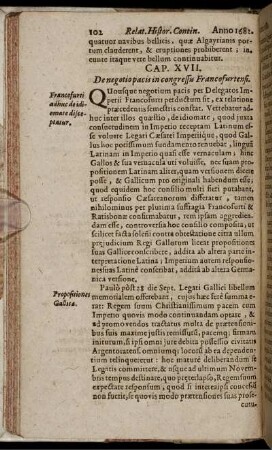 102 Relat. Histor. Contin. Anno 1681.
quatuor navibus bellicis, quæ Algyrianis por-
tum clauderent, & eruptiones prohiberent; in
eunte itaque vere bellum continuabitur.
CAP. XVII.
De negotio pacis in congressu Francofurtensi.
Francofurti
adhuc de idi-
omate disce-
ptatur.
QUousque negotium pacis per Delegatos Im-
perii Francofurti perductum sit, ex relatione
præcedentis semestris constat. Vertebatur ad-
huc inter illos quæstio, de idiomate, quod juxta
consuetudinem in Imperio receptam Latinum
esse volunt Legati Cæsarei Imperiique, quod Gal-
lus hoc pocissimum fundamento renuebat, linguã
Latinam in Imperio quasi esse vernaculam; hinc
Gallos & sua vernacula uti voluisse, nec suam pro-
positionem Latinam aliter, quam versionem dicem
posse, & Gallicum pro originali habendum esse,
quod equidem hoc consilio multi fieri putabant,
ut responsio Cæsareanorum differatur, tamen
nihilominus per plurima suffragia Francofurti &
Ratisbonæ confirmabatur, rem ipsam aggredien-
dam esse, controversia hoc consilio composita, ut
scilicet facta solenni contra obtestatione citra ullum
præjudicium Regi Gallorum liceat propositiones
suas Gallice conscribere, addita ab altera parte in-
terpretatione Latina; Imperium autem responsio-
nes suas Latinè conscribat, addita ab altera Germa-
nica versione.
Propositiones
Gallicæ.
Paulò pòst 18 die Sept. Legati Gallici libellum
memorialem offerebant, cujus hæc ferè summa e-
rat: Regem suum Christianissimum pacem cum
Imperio quovis modo continuandam optare, &
ad promovendos tractatus multa de prætensioni-
bus suis maxime justis remisisse, pacemq; firmam
initurum, si ipsi omni jure debita possessio civitatis
Argentoratensis, omniumq; locorũ ab ea dependen-
tium relinqueretur: hoc maturè deliberandum se
Legatis committere, & usque ad ultimum Novem-
bris tempus destinare, quo præterlapso, Regem suum
expectate responsum, quod si tempus præterlabi si-
nerent, se quovis modo prætensiones suas prose-
cutu-